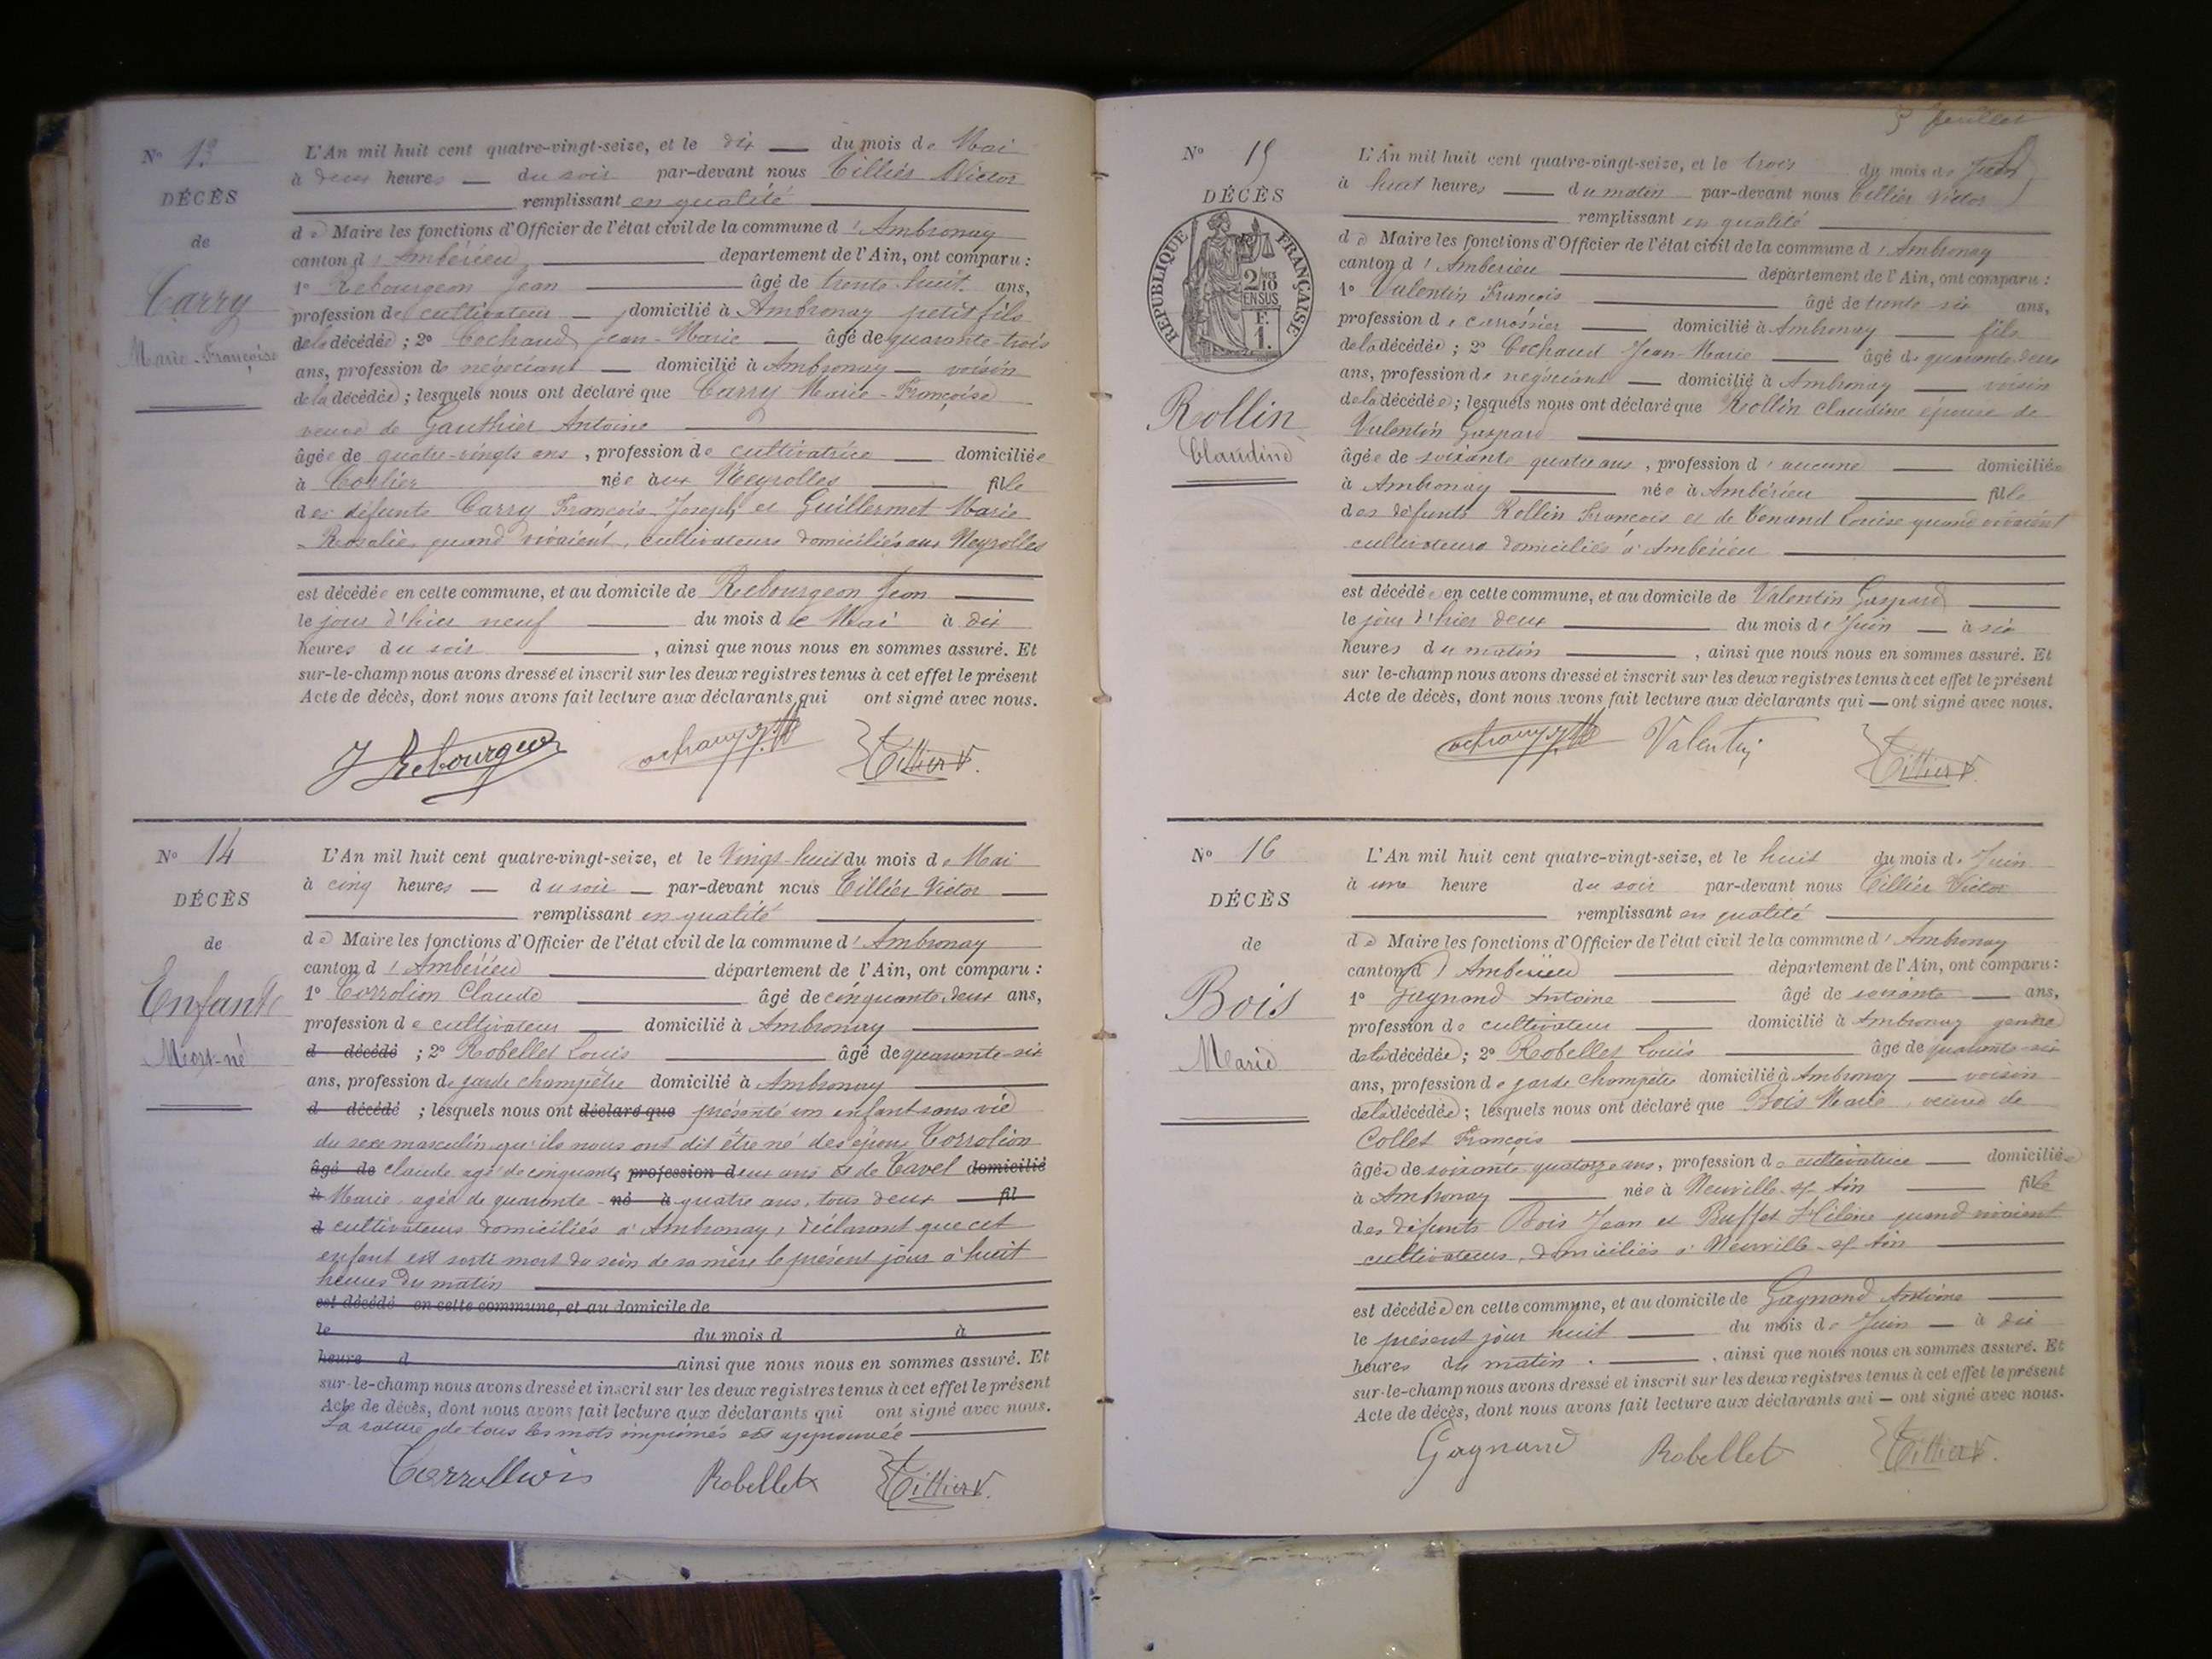 Nº 13
DÉCÈS
de
Carry
Marie-Françoise
L'An mil huit cent quatre-vingt-seize, et le dix — du mois de Mai
à deux heures — du soir par-devant nous Tillier Victor
remplissant en qualité
de Maire les fonctions d'Officier de l'état civil de la commune d'Ambronay
canton d'Ambérieu département de l'Ain, ont comparu :
1º Rebourgeon Jean âgé de trente-huit ans,
profession de cultivateur — domicilié à Ambronay petit fils
de la décédée ; 2º Cochaud Jean-Marie — âgé de quarante-trois
ans, profession de négociant — domicilié à Ambronay — voisin
de la décédée ; lesquels nous ont déclaré que Carry Marie-Françoise
veuve de Gauthier Antoine
âgée de quatre-vingts ans, profession de cultivatrice — domiciliée
à Corlier née aux Neyrolles — fille
des défunts Carry François-Joseph et Guillermet Marie
-Rosalie, quand vivaient, cultivateurs domiciliés aux Neyrolles
est décédée en cette commune, et au domicile de Rebourgeon Jean
le jour d'hier neuf du mois de Mai à dix
heures du soir, ainsi que nous nous en sommes assuré. Et
sur-le-champ nous avons dressé et inscrit sur les deux registres tenus à cet effet le présent
Acte de décès, dont nous avons fait lecture aux déclarants, qui ont signé avec nous.
J Rebourgeon Tillier V.
Nº 14
DÉCÈS
de
Enfant
Mort-né
L'An mil huit cent quatre-vingt-seize, et le Vingt-huit du mois de Mai
à cinq heures — du soir — par-devant nous Tillier Victor
remplissant en qualité
de Maire les fonctions d'Officier de l'état civil de la commune d'Ambronay
canton d'Ambérieu département de l'Ain, ont comparu :
1º Corrolion Claude âgé de cinquante-deux ans,
profession de cultivateur — domicilié à Ambronay
d décédé ; 2º Robellet Louis âgé de quarante-six
ans, profession de garde champêtre domicilié à Ambronay
d décédé ; lesquels nous ont déclaré que présenté un enfant sans vie
du sexe masculin qu'ils nous ont dit être né des époux Corrolion
âgé de claude agé de cinquante profession deux ans et de Tavel domicilié
à Marie agée de quarante-né à quatre ans, tous deux fil
d cultivateurs domiciliés à Ambronay, déclarant que cet
enfant est sorti mort du sein de sa mère le présent jour à huit
heures du matin
est décédé en cette commune, et au domicile de
le du mois d à
heure d ainsi que nous nous en sommes assuré. Et
sur-le-champ nous avons dressé et inscrit sur les deux registres tenus à cet effet le présent
Acte de décès, dont nous avons fait lecture aux déclarants qui ont signé avec nous.
La rature de tous les mots imprimés est approuvée
Robellet Tillier V.
5 feuillet
Nº 15
DÉCÈS
RÉPUBLIQUE FRANÇAISE
2/10 EN SUS
F. 1.
Rollin
Claudine
L'An mil huit cent quatre-vingt-seize, et le trois du mois de Juin
à huit heures — du matin par-devant nous Tillier Victor
remplissant en qualité
de Maire les fonctions d'Officier de l'état civil de la commune d'Ambronay
canton d'Ambérieu département de l'Ain, ont comparu :
1º Valentin François âgé de trente six ans,
profession de carrossier — domicilié à Ambronay — fils
de la décédée ; 2º Cochaud Jean-Marie — âgé de quarante-deux
ans, profession de négociant — domicilié à Ambronay — voisin
de la décédée ; lesquels nous ont déclaré que Rollin Claudine épouse de
Valentin Gaspard
âgée de soixante quatre ans, profession d'aucune — domiciliée
à Ambronay née à Ambérieu fille
des défunts Rollin François et de Venand Louise quand vivaient
cultivateurs domiciliés à Ambérieu
est décédée en cette commune, et au domicile de Valentin Gaspard
le jour d'hier deux du mois de Juin — à six
heures du matin, ainsi que nous nous en sommes assuré. Et
sur le-champ nous avons dressé et inscrit sur les deux registres tenus à cet effet le présent
Acte de décès, dont nous avons fait lecture aux déclarants qui — ont signé avec nous.
Valentin Tillier V.
Nº 16
DÉCÈS
de
Bois
Marie
L'An mil huit cent quatre-vingt-seize, et le huit du mois de Juin
à une heure du soir par-devant nous Tillier Victor
remplissant en qualité
de Maire les fonctions d'Officier de l'état civil de la commune d'Ambronay
canton d'Ambérieu département de l'Ain, ont comparu :
1º Gagnand Antoine âgé de soixante — ans,
profession de cultivateur — domicilié à Ambronay gendre
de la décédée ; 2º Robellet Louis âgé de quarante-six
ans, profession de garde champêtre domicilié à Ambronay — voisin
de la décédée ; lesquels nous ont déclaré que Bois Marie, veuve de
Collet François
âgée de soixante-quatorze ans, profession de cultivatrice — domiciliée
à Ambronay née à Neuville-sr-Ain fille
des défunts Bois Jean et Buffet Hélène quand vivaient
cultivateurs, domiciliés à Neuville-sr-Ain
est décédée en cette commune, et au domicile de Gagnand Antoine
le présent jour huit du mois de Juin — à dix
heures du matin, ainsi que nous nous en sommes assuré. Et
sur-le-champ nous avons dressé et inscrit sur les deux registres tenus à cet effet le présent
Acte de décès, dont nous avons fait lecture aux déclarants qui — ont signé avec nous.
Gagnand Robellet Tillier V.